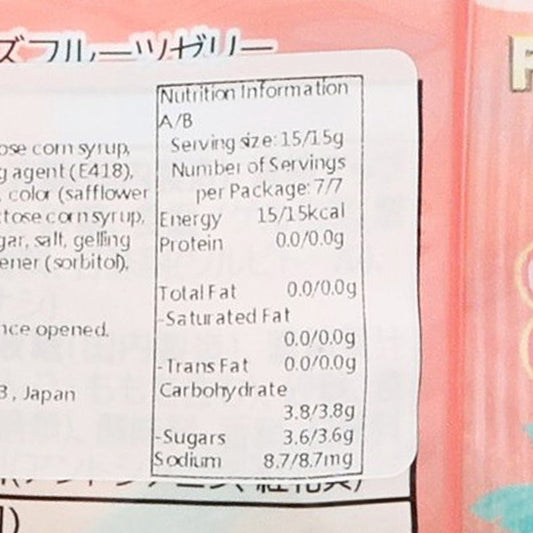 ズフルーツゼリー
ose corn syrup,
g agent (E418),
, color (safflower
ctose corn syrup,
gar, salt, gelling
ener (sorbitol),
nce opened.
3, Japan
Nutrition Information
A/B
Serving size: 15/15g
Number of Servings
per Package: 7/7
Energy 15/15kcal
Protein 0.0/0.0g
Total Fat 0.0/0.0g
-Saturated Fat
0.0/0.0g
-Trans Fat 0.0/0.0g
Carbohydrate
3.8/3.8g
-Sugars 3.6/3.6g
Sodium 8.7/8.7mg